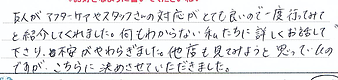 友人がアフターケアやスタッフさんの対応がとても良いので一度行ってみて
と紹介してくれました。何もわからない私たちに詳しくお話して
下さり、不安がやわらぎました。他店も見てみようと思っていたの
ですが、こちらに決めさせていただきました。